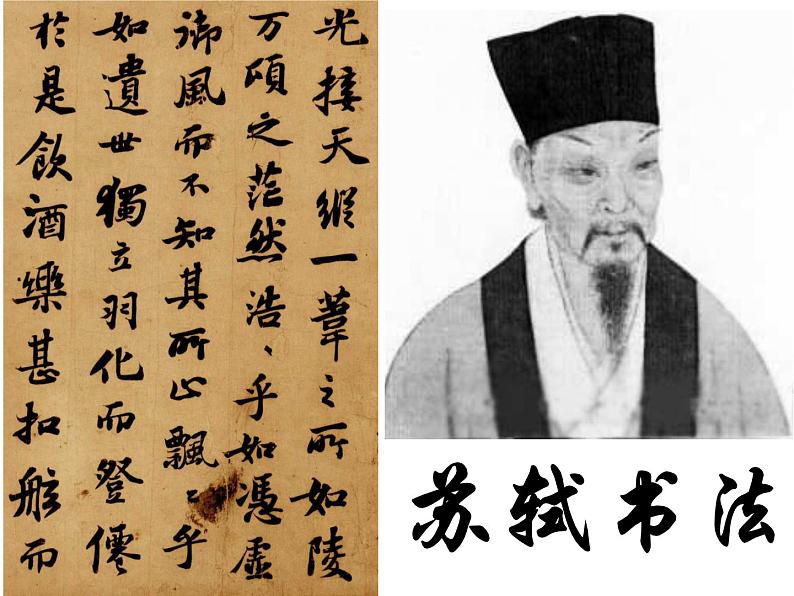 光接天縱一葦之所如陵
万頃之茫然浩〻乎如馮虛
御風而不知其所止飄〻乎
如遺世獨立羽化而登僊
於是飲酒樂甚扣舷而
苏轼书法